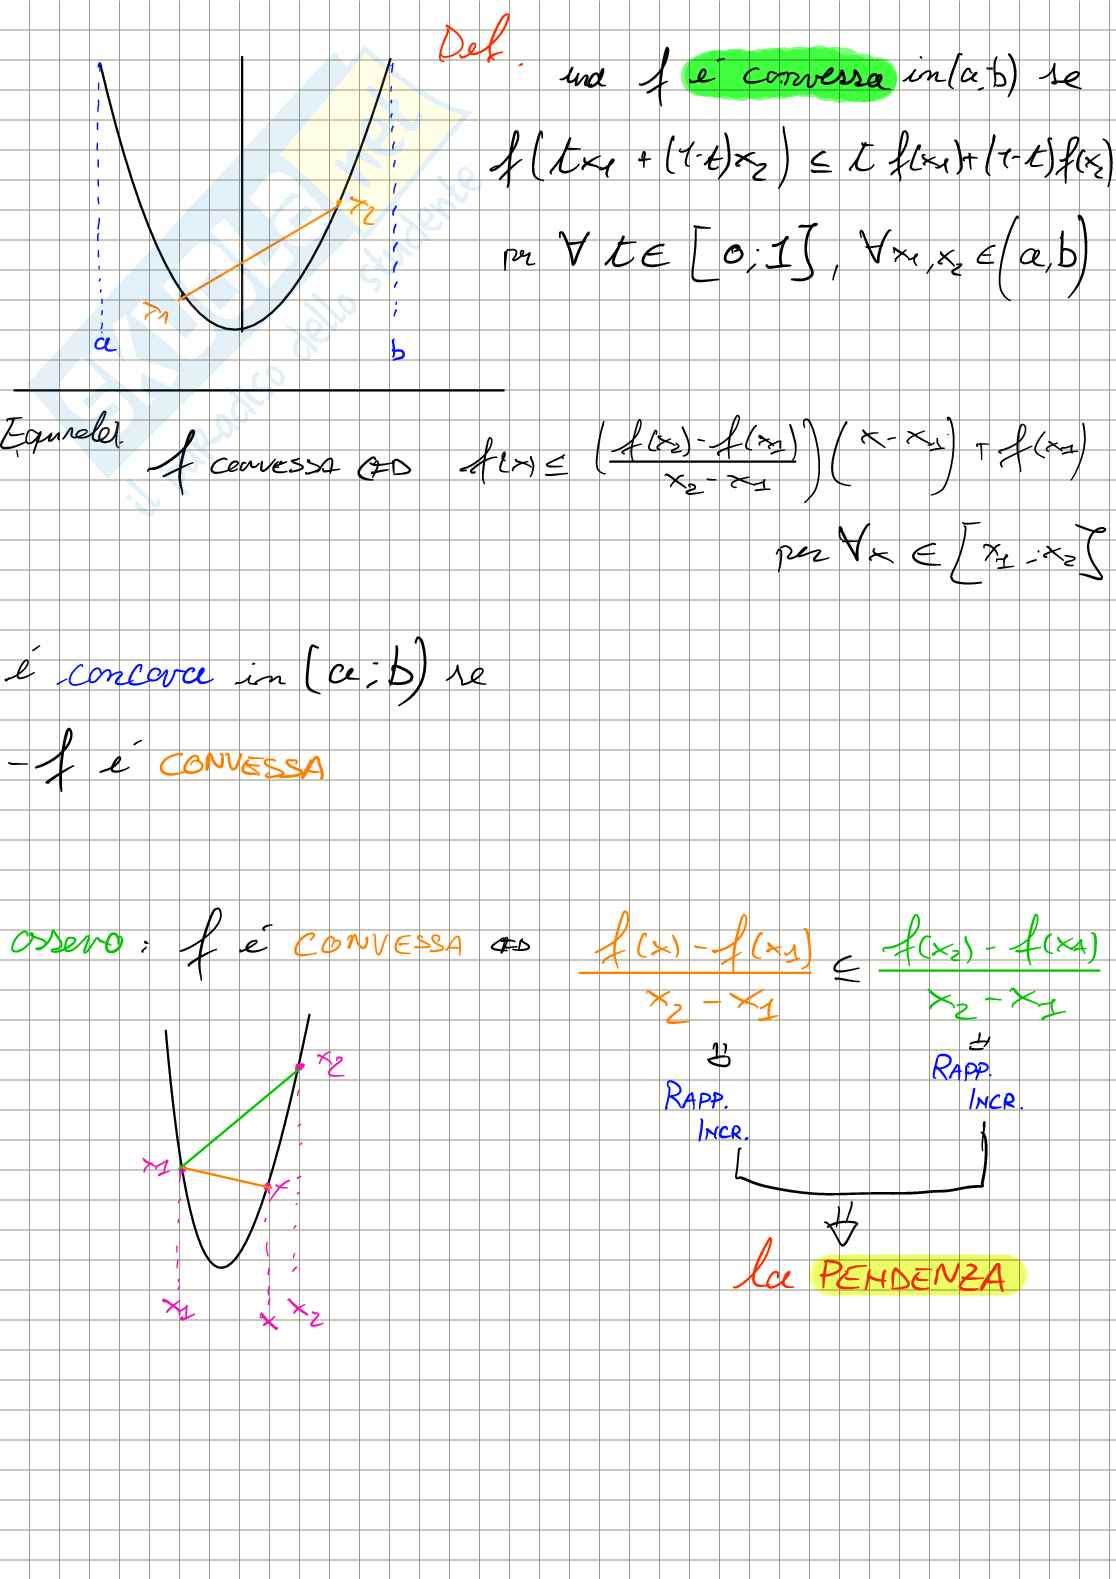 Def.
una f é convessa in (a;b) se
f(tx₁ + (1-t)x₂) ≤ t f(x₁)+(1-t)f(x₂)
per ∀ t ∈ [0;1], ∀x₁,x₂ ∈ (a,b)
x₂
x₁
a b
SKUOLA.net
il paradiso dello studente
f CONVESSA ⇔ f(x) ≤ ((f(x₂)-f(x₁))/(x₂-x₁)) (x-x₁) + f(x₁)
per ∀x ∈ [x₁;x₂]
é concava in (a;b) se
-f é CONVESSA
osservo: f é CONVESSA ⇔ (f(x)-f(x₁))/(x₂-x₁) ≤ (f(x₂)-f(x₁))/(x₂-x₁)
RAPP.
INCR.
RAPP.
INCR.
la PENDENZA
x₂
x₁
x
x₁ x x₂